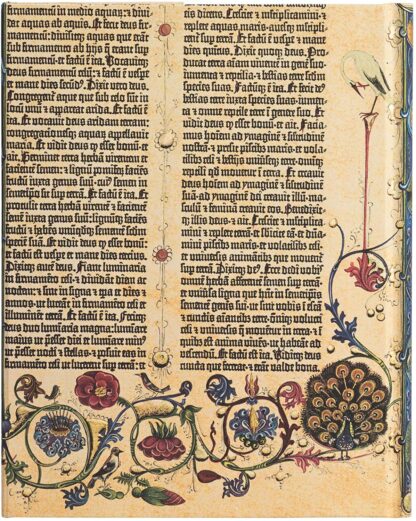 firmamentū in medio aquaꝝ: ⁊ divi-
dat aquas ab aquis. Et fecit deus fir-
mamentū: divisitq; aquas que erant
sub firmamento ab hijs q̄ erant sup̄
firmamentū: et factū ē ita. Vocavitq;
deus firmamentū celū: ⁊ factū ē vespe
et mane dies secūd9. Dixit vero deus.
Congregent̄ aque que sub celo sūt in
locū unū ⁊ appareat arida. Et factū ē
ita. Et vocavit deus aridam terram:
congregacionesq; aquaꝝ appellavit
maria. Et vidit deus q̄ esset bonū-et
ait. Germinet terra herbā virentem et
facientē semen: et lignū pomiferū faciēs
fructū iuxta genus suū-cui9 semen in
semetipso sit sup̄ terrā. Et factū ē ita. Et
protulit terra herbā virentē ⁊ facientē
semē iuxta genus suū: lignūq; faciēs
fructū ⁊ habēs unūqdq; sementē scdm̄
speciē suā. Et vidit deus q̄ esset bonū:
et factū est vespe et mane dies tercius.
Dixitq; autē deus. Fiant luminaria
in firmamēto celi-⁊ dividāt diem ac
noctem: ⁊ sint in signa ⁊ tpa et dies ⁊
annos-ut luceāt in firmamēto celi et
illuminēt terrā. Et factū ē ita. Fecitq;
deus duo luminaria magna: lumiare
maius ut p̄esset diei et lumiare min9
ut p̄esset nocti ⁊ stellas-⁊ posuit eas in
firmamēto celi ut lucerent sup̄ terrā: et
tis dicens. Crescite ⁊ m̄ltiplicamini-⁊
replete aquas maris-avesq; m̄ltipli-
cent̄ sup̄ terrā. Et factū ē vespe ⁊ mane
dies quint9. Dixit quoq; deus. Pro-
ducat terra aīam viventē in gene̅ suo-
iumenta ⁊ reptilia-⁊ bestias terre scdm̄
species suas. Factūq; ē ita. Et fecit de9
bestias terre iuxta species suas-iumen-
ta ⁊ omne reptile terre ī genere suo. Et
vidit deus q̄ esset bonū-et ait. Facia-
mus hoīem ad ymaginē ⁊ silitudinē
nostrā-⁊ p̄sit piscib; maris-et vola-
tilib; celi ⁊ bestijs universeq; terre-omiq;
reptili qd̄ movetur ī terra. Et creavit
deus hoīem ad ymaginē ⁊ silitudinē
suā-ad ymaginē dei creavit illū-ma-
sculū ⁊ feminā creavit eos. Benedixit-
q; illis deus-⁊ ait. Crescite ⁊ m̄ltiplica-
mini ⁊ replete terrā-et subicite eā-et dn̄a-
mini piscib; maris-et volatilib; celi-
et universis animātib; que movent̄
sup̄ terrā. Dixitq; de9. Ecce dedi vobis
omnē herbā afferentē semen sup̄ terrā-
et universa ligna que hn̄t in semetipis
semētē genis sui-ut sint vobis ī escā
⁊ cunctis aīantib; terre-oniq; volucri
celi ⁊ universis q̄ movent̄ in terra-et ī
quib; est anima vivēs-ut habeāt ad
vescendū. Et factū est ita. Viditq; deus
cuncta que fecerat-⁊ erāt valde bona.